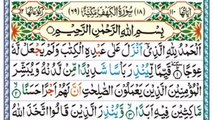 ١١٠ (١٨) سُوْرَةُ الْكَهْفِ مَكِّيَّةٌ (٦٩)
بِسْمِ اللّٰهِ الرَّحْمٰنِ الرَّحِيْمِ
اَلْحَمْدُ لِلّٰهِ الَّذِيْۤ اَنْزَلَ عَلٰى عَبْدِهِ الْكِتٰبَ وَلَمْ يَجْعَلْ لَّهٗ
عِوَجًا قَيِّمًا لِّيُنْذِرَ بَاْسًا شَدِيْدًا مِّنْ لَّدُنْهُ وَيُبَشِّرَ
الْمُؤْمِنِيْنَ الَّذِيْنَ يَعْمَلُوْنَ الصّٰلِحٰتِ اَنَّ لَهُمْ اَجْرًا
مَّاكِثِيْنَ فِيْهِ اَبَدًا وَّيُنْذِرَ الَّذِيْنَ قَالُوا اتَّخَذَ اللّٰهُ